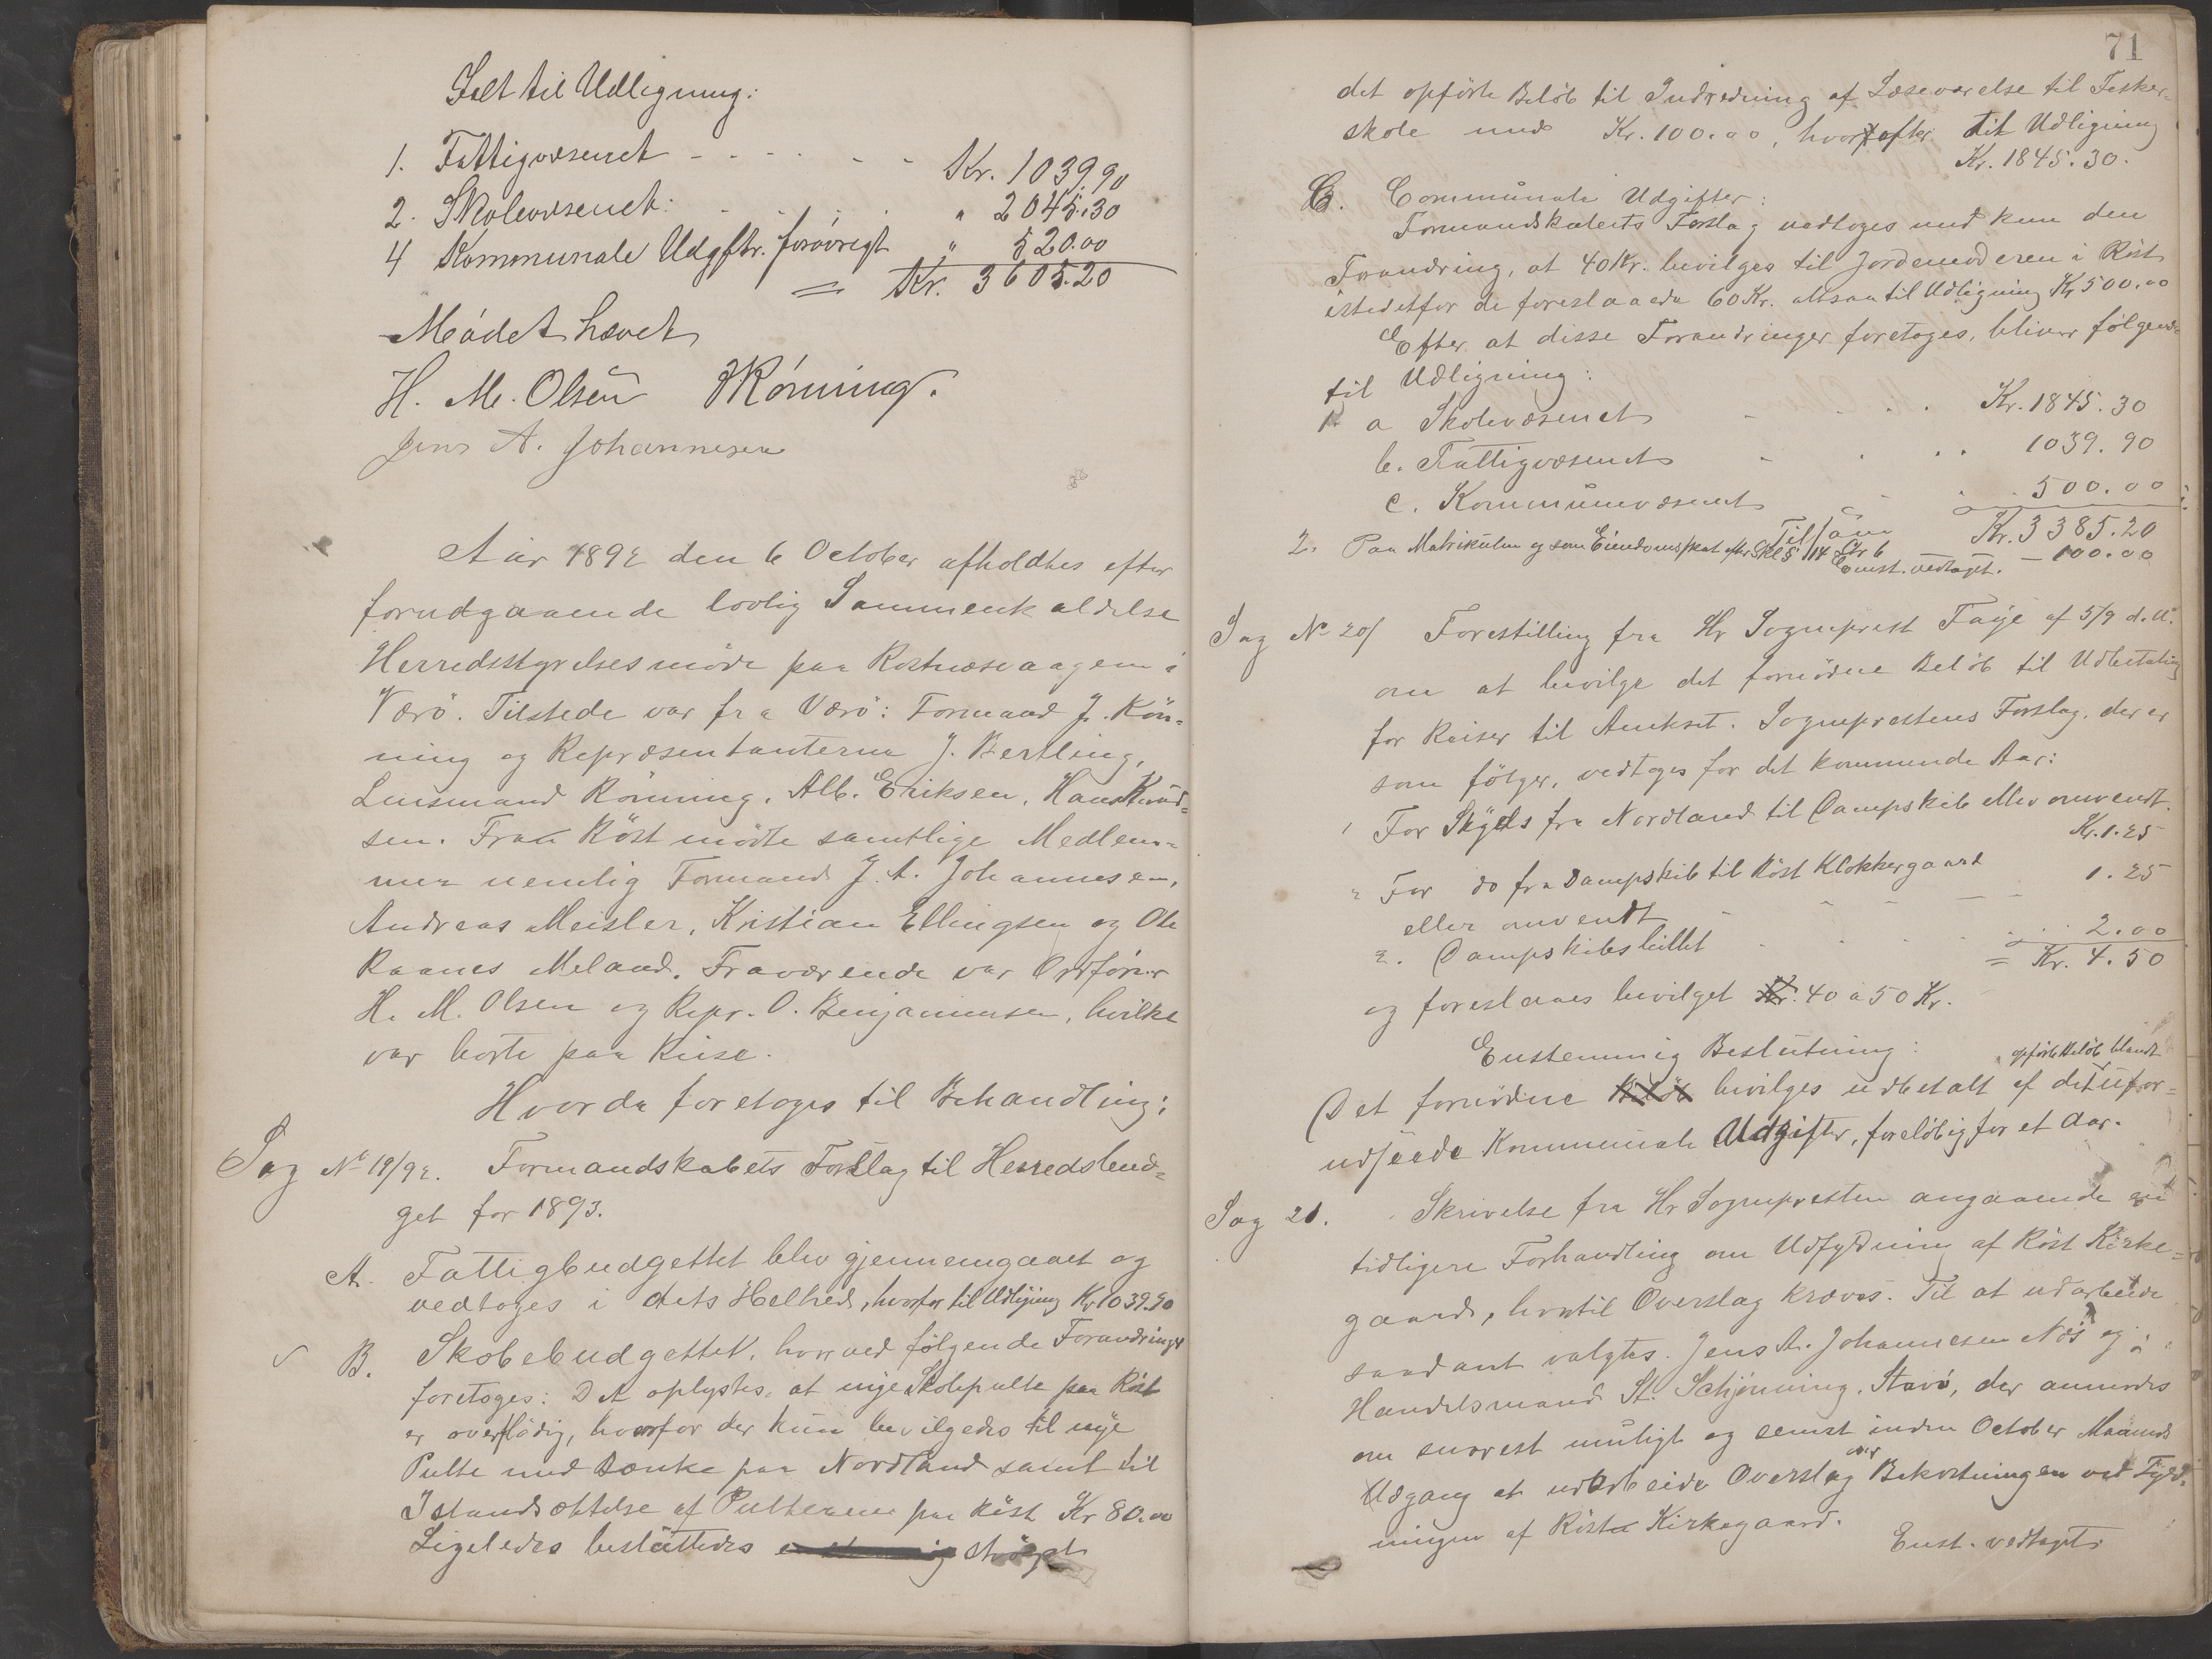 Ialt til Udligning:
1. Fattigvæsenet - - - - - - Kr. 1039 90
2. Skolevæsenet: . . . . " 2045.30
4 Kommunale Udgftr. forøvrigt " 520.00
= Kr. 3605.20
Mödet hævet
H. M. Olsen JRönning.
Jens A. Johannesen
Aar 1892 den 6 October afholdtes efter
forudgaaende lovlig Sammenkaldelse
Herredsstyrelsesmöde paa Röstnæsvaagen i
Værö. Tilstede var fra Værö: Formand J. Rön-
ning og Repræsentanterne J. Bertling,
Lensmand Rönning, Alb. Eriksen, Hans Knud-
sen. Fra Röst mödte samtlige Medlem-
mer nemlig Formand J. A. Johannesen,
Andreas Meisler, Kristian Ellingsen og Ole
Raanes Meland. Fraværende var Ordförer
H. M. Olsen og Repr. O. Benjaminsen, hvilke
var borte paa Reise.
Hvorda foretoges til Behandling:
Sag No 19/92. Formandskabets Forslag til Herredsbud-
get for 1893.
A. Fattigbudgettet blev gjennemgaaet og
vedtoges i dets Helhed, hvorfor til Udligning Kr 1039.90
B. Skolebudgettet, hvorved følgende Forandringer
foretoges: Det oplystes, at nye Skolepulte paa Röst
er overflödig, hvorfor der kun bevilgedes til nye
Pulte med Bænke paa Nordland samt til
Istandsættelse af Pulterne paa Röst Kr 80.00
Ligeledes besluttedes ströget
71
det opförte Belöb til Indredning af Læseværelse til Fisker-
skole med Kr. 100.00, hvorefter til Udligning
Kr. 1845.30.
C. Communale Udgifter:
Formandskabets Forslag vedtoges med kun den
Forandring, at 40 Kr. bevilges til Jordemoderen i Röst
istedetfor de foreslaaede 60 Kr. altsaa til Udligning Kr 500.00
Efter at disse Forandringer foretoges, bliver følgende
til Udligning:
1. a Skolevæsenet - . . . Kr. 1845.30
b. Fattigvæsenet - . . . 1039.90
c. Kommunevæsenet - . . 500.00
Tilsam Kr. 3385.20
2. Paa Matrikulen og som Eiendomsskat efter Skl § 14 Nr 6
Eenst. vedtaget. - 100.00
Sag No 20/ Forestilling fra Hr Sogneprest Faye af 5/9 d. A.
om at bevilge det fornödne Belöb til Udbetaling
for Reiser til Annekset. Sogneprestens Forslag, der er
som fölger, vedtoges for det kommende Aar:
1 For Skyds fra Nordland til Dampskib eller omvendt.
Kr. 1.25
2 For do fra Dampskib til Röst Klokkergaard
eller omvendt - - - - - 1.25
3. Dampskibsbillet . . . . . 2.00
= Kr. 4.50
og foreslaaes bevilget Kr. 40 a 50 Kr.
Enstemmig Beslutning:
opförte Belöb blandt
Det fornödne Belöb bevilges udbetalt af det ufor-
udseede Kommunale Udgifter, forelöbig for et Aar.
Sag 21. Skrivelse fra Hr Sognepresten angaaende en
tidligere Forhandling om Udfyldning af Röst Kirke-
gaard, hvortil Overslag kræves. Til at udarbeide
saadant valgtes. Jens A. Johannesen Næs og
Handelsmand St. Schjönning, Stavö, der anmodes
om snarest muligt og senest inden October Maaneds
Udgang at udarbeide Overslag over Bekostningen ved Fyld-
ningen af Röst Kirkegaard.
Enst. vedtaget.